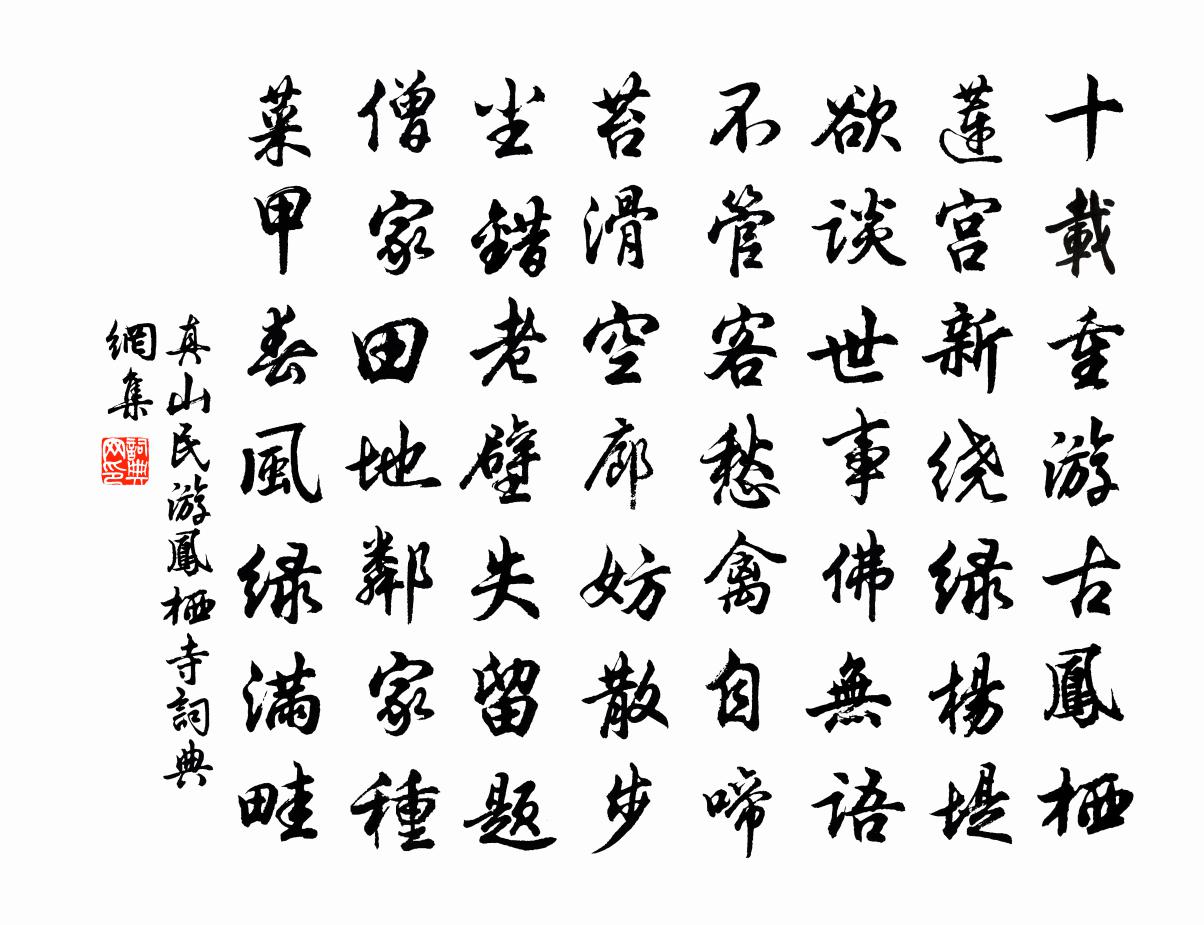 十載重游古鳳栖
蓮宫新绕绿楊堤
欲談世事佛無語
不管客愁禽自啼
苔滑空廊妨散步
尘錯老壁失留題
僧家田地鄰家種
菜甲春風绿滿畦
真山民游鳳栖寺詞典
網集
詞典
网印